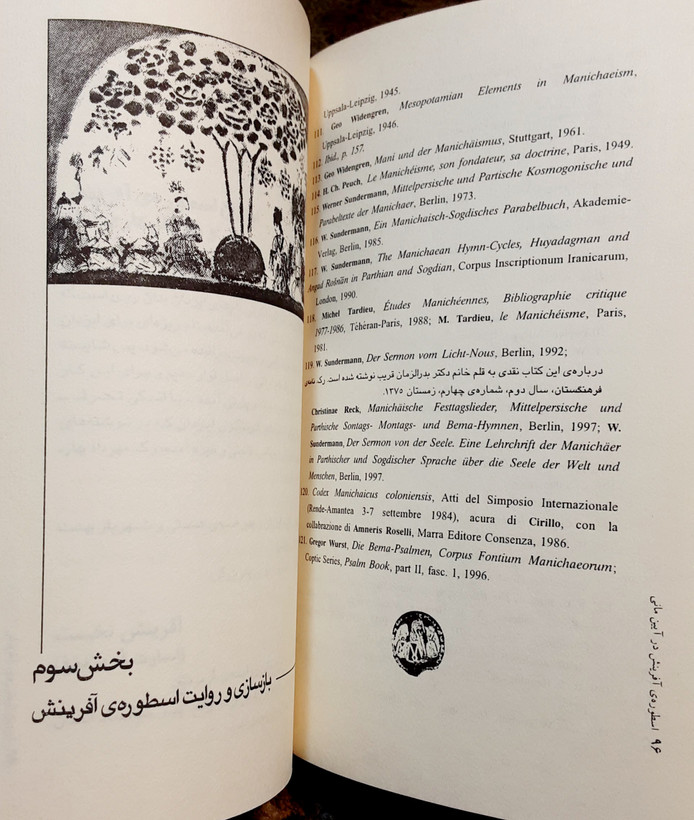 Uppsala-Leipzig, 1945.
111. Geo Widengren, Mesopotamian Elements in Manichaeism,
Uppsala-Leipzig, 1946.
112. Ibid, p. 157.
113. Geo Widengren, Mani und der Manichäismus, Stuttgart, 1961.
114. H. Ch. Peuch, Le Manichéisme, son fondateur, sa doctrine, Paris, 1949.
115. Werner Sundermann, Mittelpersische und Partische Kosmogonische und
Parabeltexte der Manichaer, Berlin, 1973.
116. W. Sundermann, Ein Manichaisch-Sogdisches Parabelbuch, Akademie-
Verlag, Berlin, 1985.
117. W. Sundermann, The Manichaean Hymn-Cycles, Huyadagman and
Angad Rošnān in Parthian and Sogdian, Corpus Inscriptionum Iranicarum,
London, 1990.
118. Michel Tardieu, Études Manichéennes, Bibliographie critique
1977-1986, Téhéran-Paris, 1988; M. Tardieu, le Manichéisme, Paris,
1981.
119. W. Sundermann, Der Sermon vom Licht-Nous, Berlin, 1992;
درباره‌ی این کتاب نقدی به قلم خانم دکتر بدرالزمان قریب نوشته شده است. رک. نامه‌ی
فرهنگستان، سال دوم، شماره‌ی چهارم، زمستان ۱۳۷۵.
Christinae Reck, Manichäische Festtagslieder, Mittelpersische und
Parthische Sontags- Montags- und Bema-Hymnen, Berlin, 1997; W.
Sundermann, Der Sermon von der Seele. Eine Lehrchrift der Manichäer
in Parthischer und Sogdischer Sprache über die Seele der Welt und
Menschen, Berlin, 1997.
120. Codex Manichaicus coloniensis, Atti del Simposio Internazionale
(Rende-Amantea 3-7 settembre 1984), acura di Cirillo, con la
collabrazione di Amneris Roselli, Marra Editore Consenza, 1986.
121. Gregor Wurst, Die Bema-Psalmen, Corpus Fontium Manichaeorum;
Coptic Series, Psalm Book, part II, fasc. 1, 1996.
۹۶ اسطوره‌ی آفرینش در آیین مانی
بخش سوم
بازسازی و روایت اسطوره‌ی آفرینش